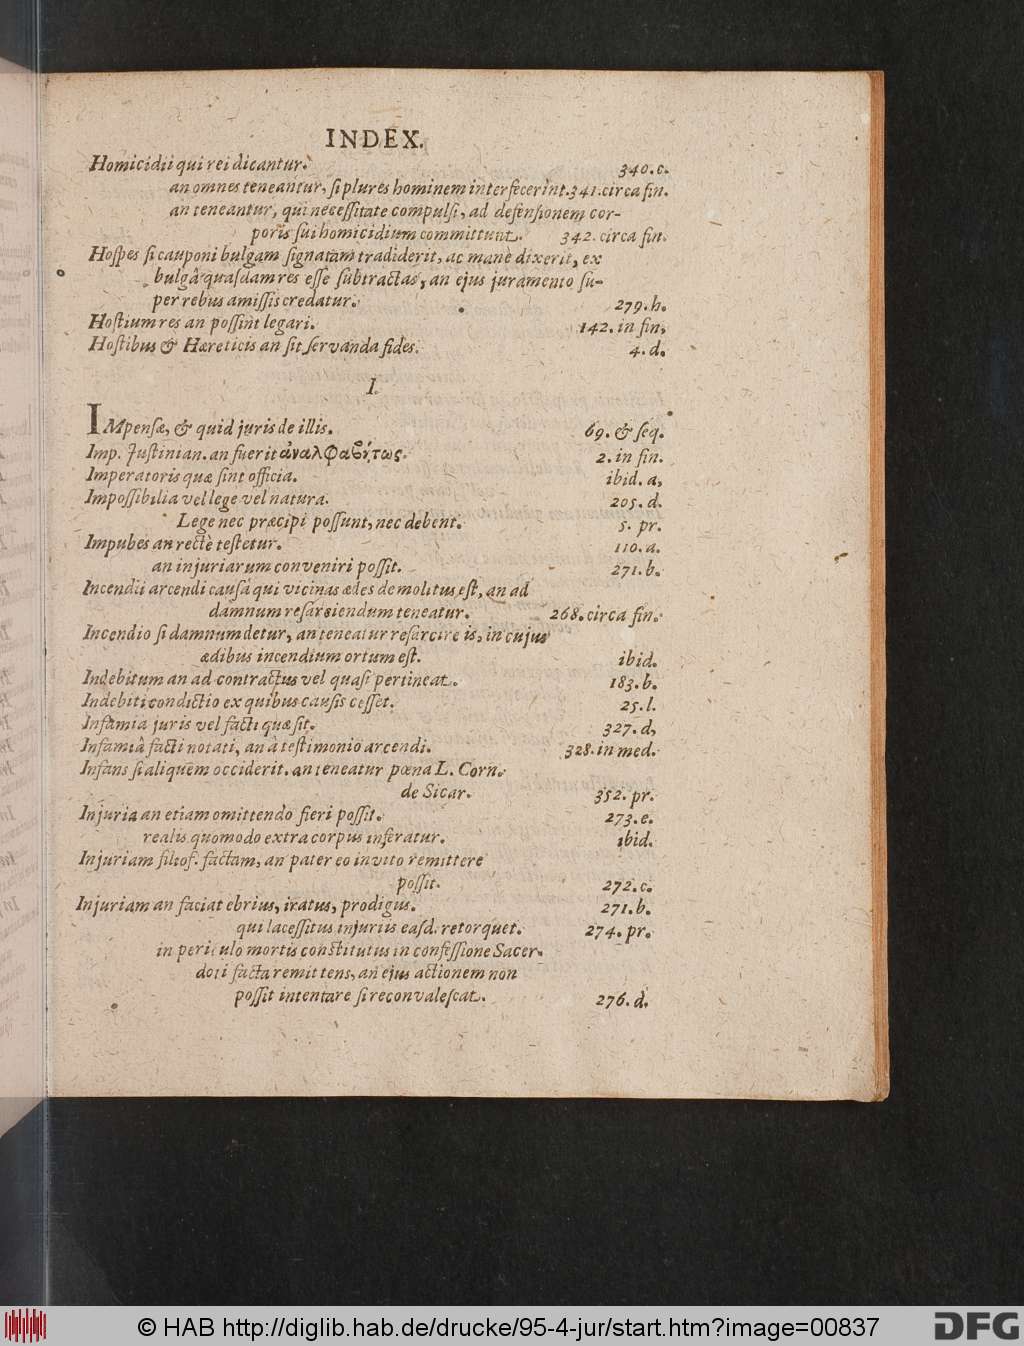 INDEX.
Homicidii qui rei dicantur. 340. c.
an omnes teneantur, si plures hominem interfecerint. 341. circa fin.
an teneantur, qui necessitate compulsi, ad defensionem cor-
poris sui homicidium committunt. 342. circa fin.
Hospes si cauponi bulgam signatam tradiderit, ac manè dixerit, ex
bulgâ quasdam res esse subtractas, an ejus juramento su-
per rebus amissis credatur. 279. h.
Hostium res an possint legari. 142. in fin,
Hostibus & Hæreticis an sit servanda fides. 4. d.
I.
IMpensæ, & quid juris de illis. 69. & seq.
Imp. Justinian. an fuerit ἀναλφαβήτως. 2. in fin.
Imperatoris quæ sint officia. ibid. a,
Impossibilia vel lege vel natura. 205. d.
Lege nec præcipi possunt, nec debent. 5. pr.
Impubes an rectè testetur. 110. a.
an injuriarum conveniri possit. 271. b.
Incendii arcendi causâ qui vicinas ædes demolitus est, an ad
damnum resarsiendum teneatur. 268. circa fin.
Incendio si damnum detur, an teneatur resarcire is, in cujus
ædibus incendium ortum est. ibid.
Indebitum an ad contractus vel quasi pertineat. 183. b.
Indebiti condictio ex quibus causis cesset. 25. l.
Infamia juris vel facti quæ sit. 327. d,
Infamiâ facti notati, an à testimonio arcendi. 328. in med.
Infans si aliquem occiderit. an teneatur pœna L. Corn.
de Sicar. 352. pr.
Injuria an etiam omittendo fieri possit. 273. e.
realis quomodo extra corpus inferatur. ibid.
Injuriam filiof. factam, an pater eo invito remittere
possit. 272. c.
Injuriam an faciat ebrius, iratus, prodigus. 271. b.
qui lacessitus injuriis easd. retorquet. 274. pr.
in periculo mortis constitutus in confessione Sacer-
doti facta remittens, an ejus actionem non
possit intentare si reconvalescat. 276. d.
© HAB http://diglib.hab.de/drucke/95-4-jur/start.htm?image=00837
DFG